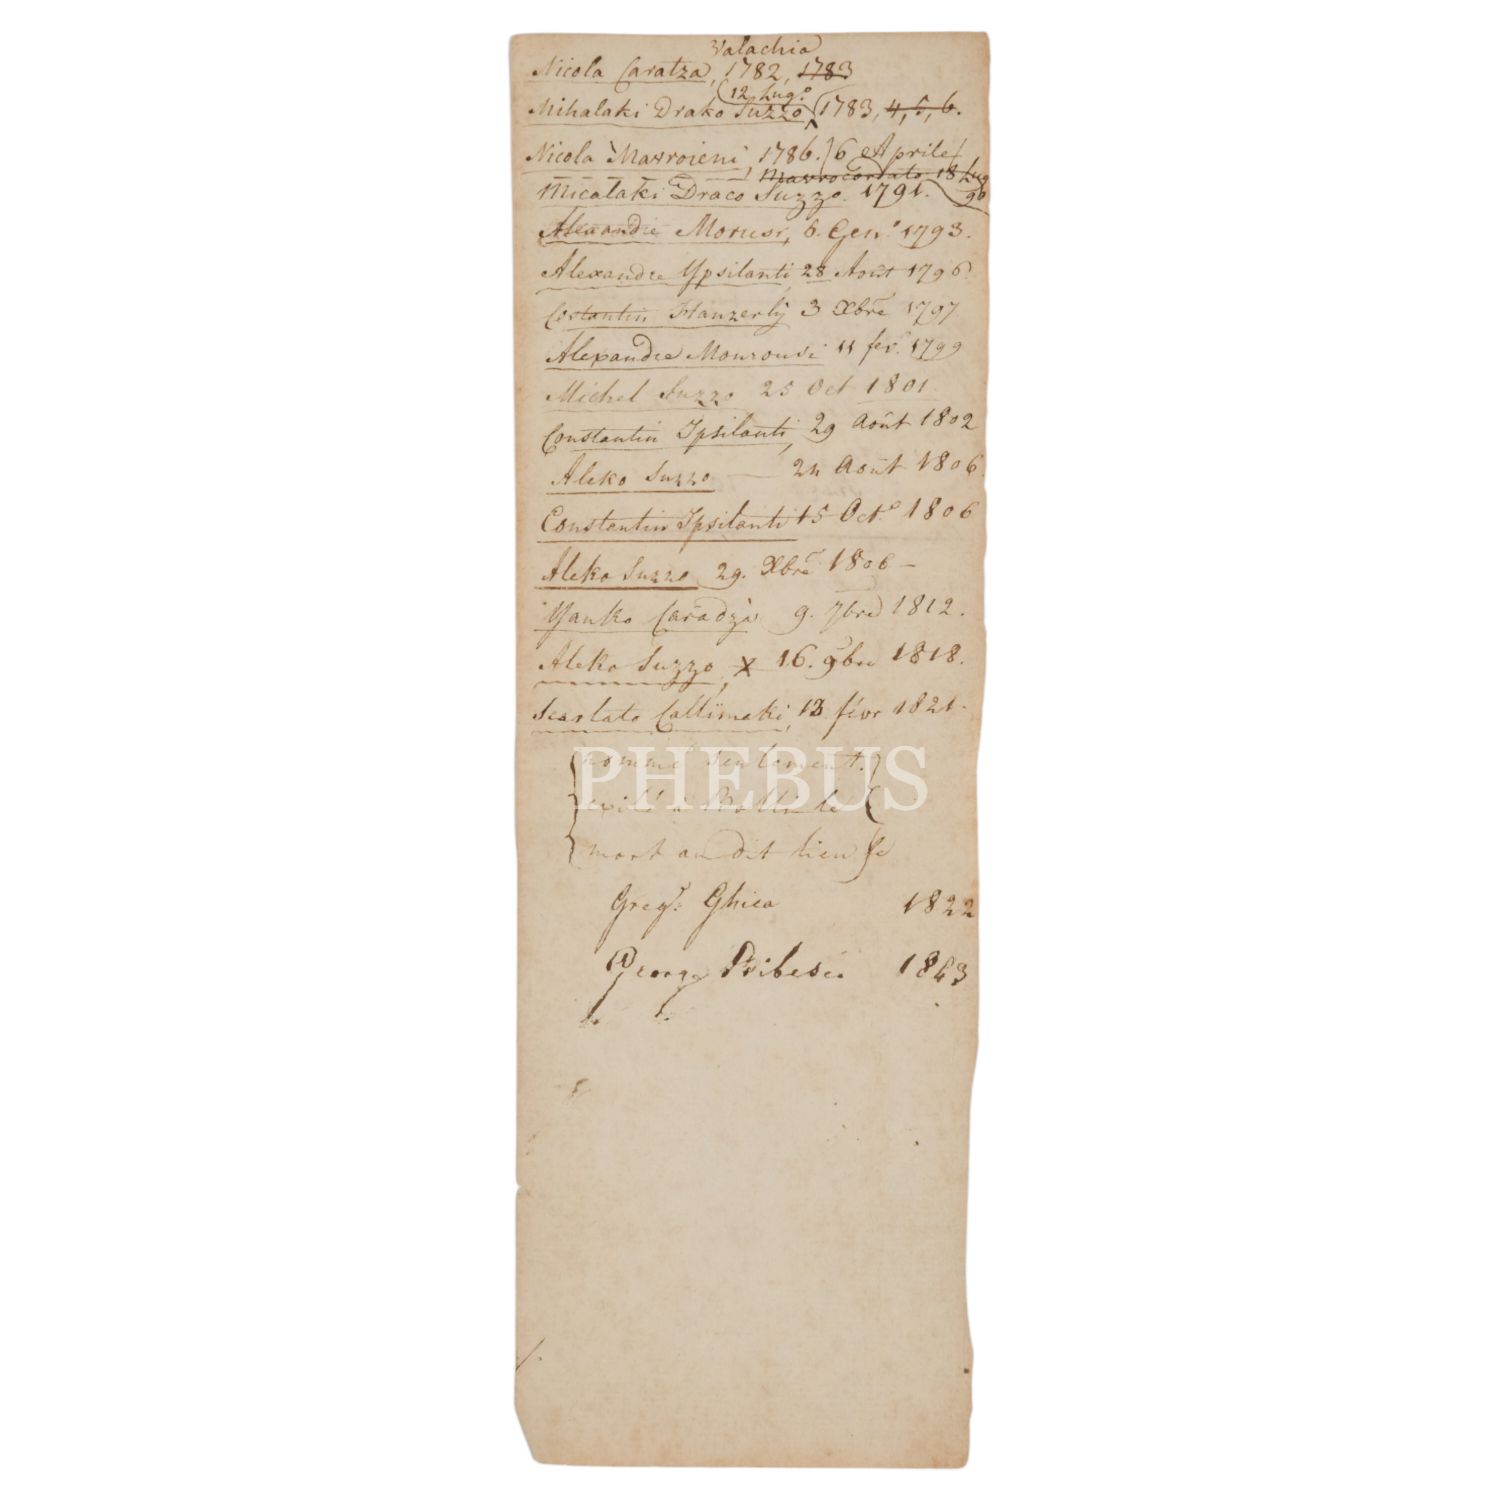 Valachia
Nicola Caratza, 1782, 1783
12 Lug.o
Mihalaki Drako Suzzo 1783, 4, 5, 6.
Nicola Mavroieni, 1786. 6 Aprile
Mavrocordato 18 Lug
90
Micalaki Draco Suzzo. 1791.
Alexandre Morusi, 6. Gen.o 1793.
Alexandre Ypsilanti, 28 Août 1796
Costantin Hanzerly 3 Xbre 1797
Alexandre Mourousi 11 fev. 1799
Michel Suzzo 25 Oct 1801.
Constantin Ipsilanti, 29 Août 1802
Aleko Suzzo — 24 Août 1806.
Constantin Ipsilanti 15 Oct.e 1806
Aleko Suzzo 29. Xbre 1806 –
Yanko Caradza 9. 7bre 1812.
Aleko Suzzo, X 16. 9bre 1818.
Scarlato Callimaki, 13 févr 1821.
nommé seulement.
exilé à Bolli le
mort au dit lieu le
Greg.r Ghica 1822
George Bibesco 1843
PHEBUS